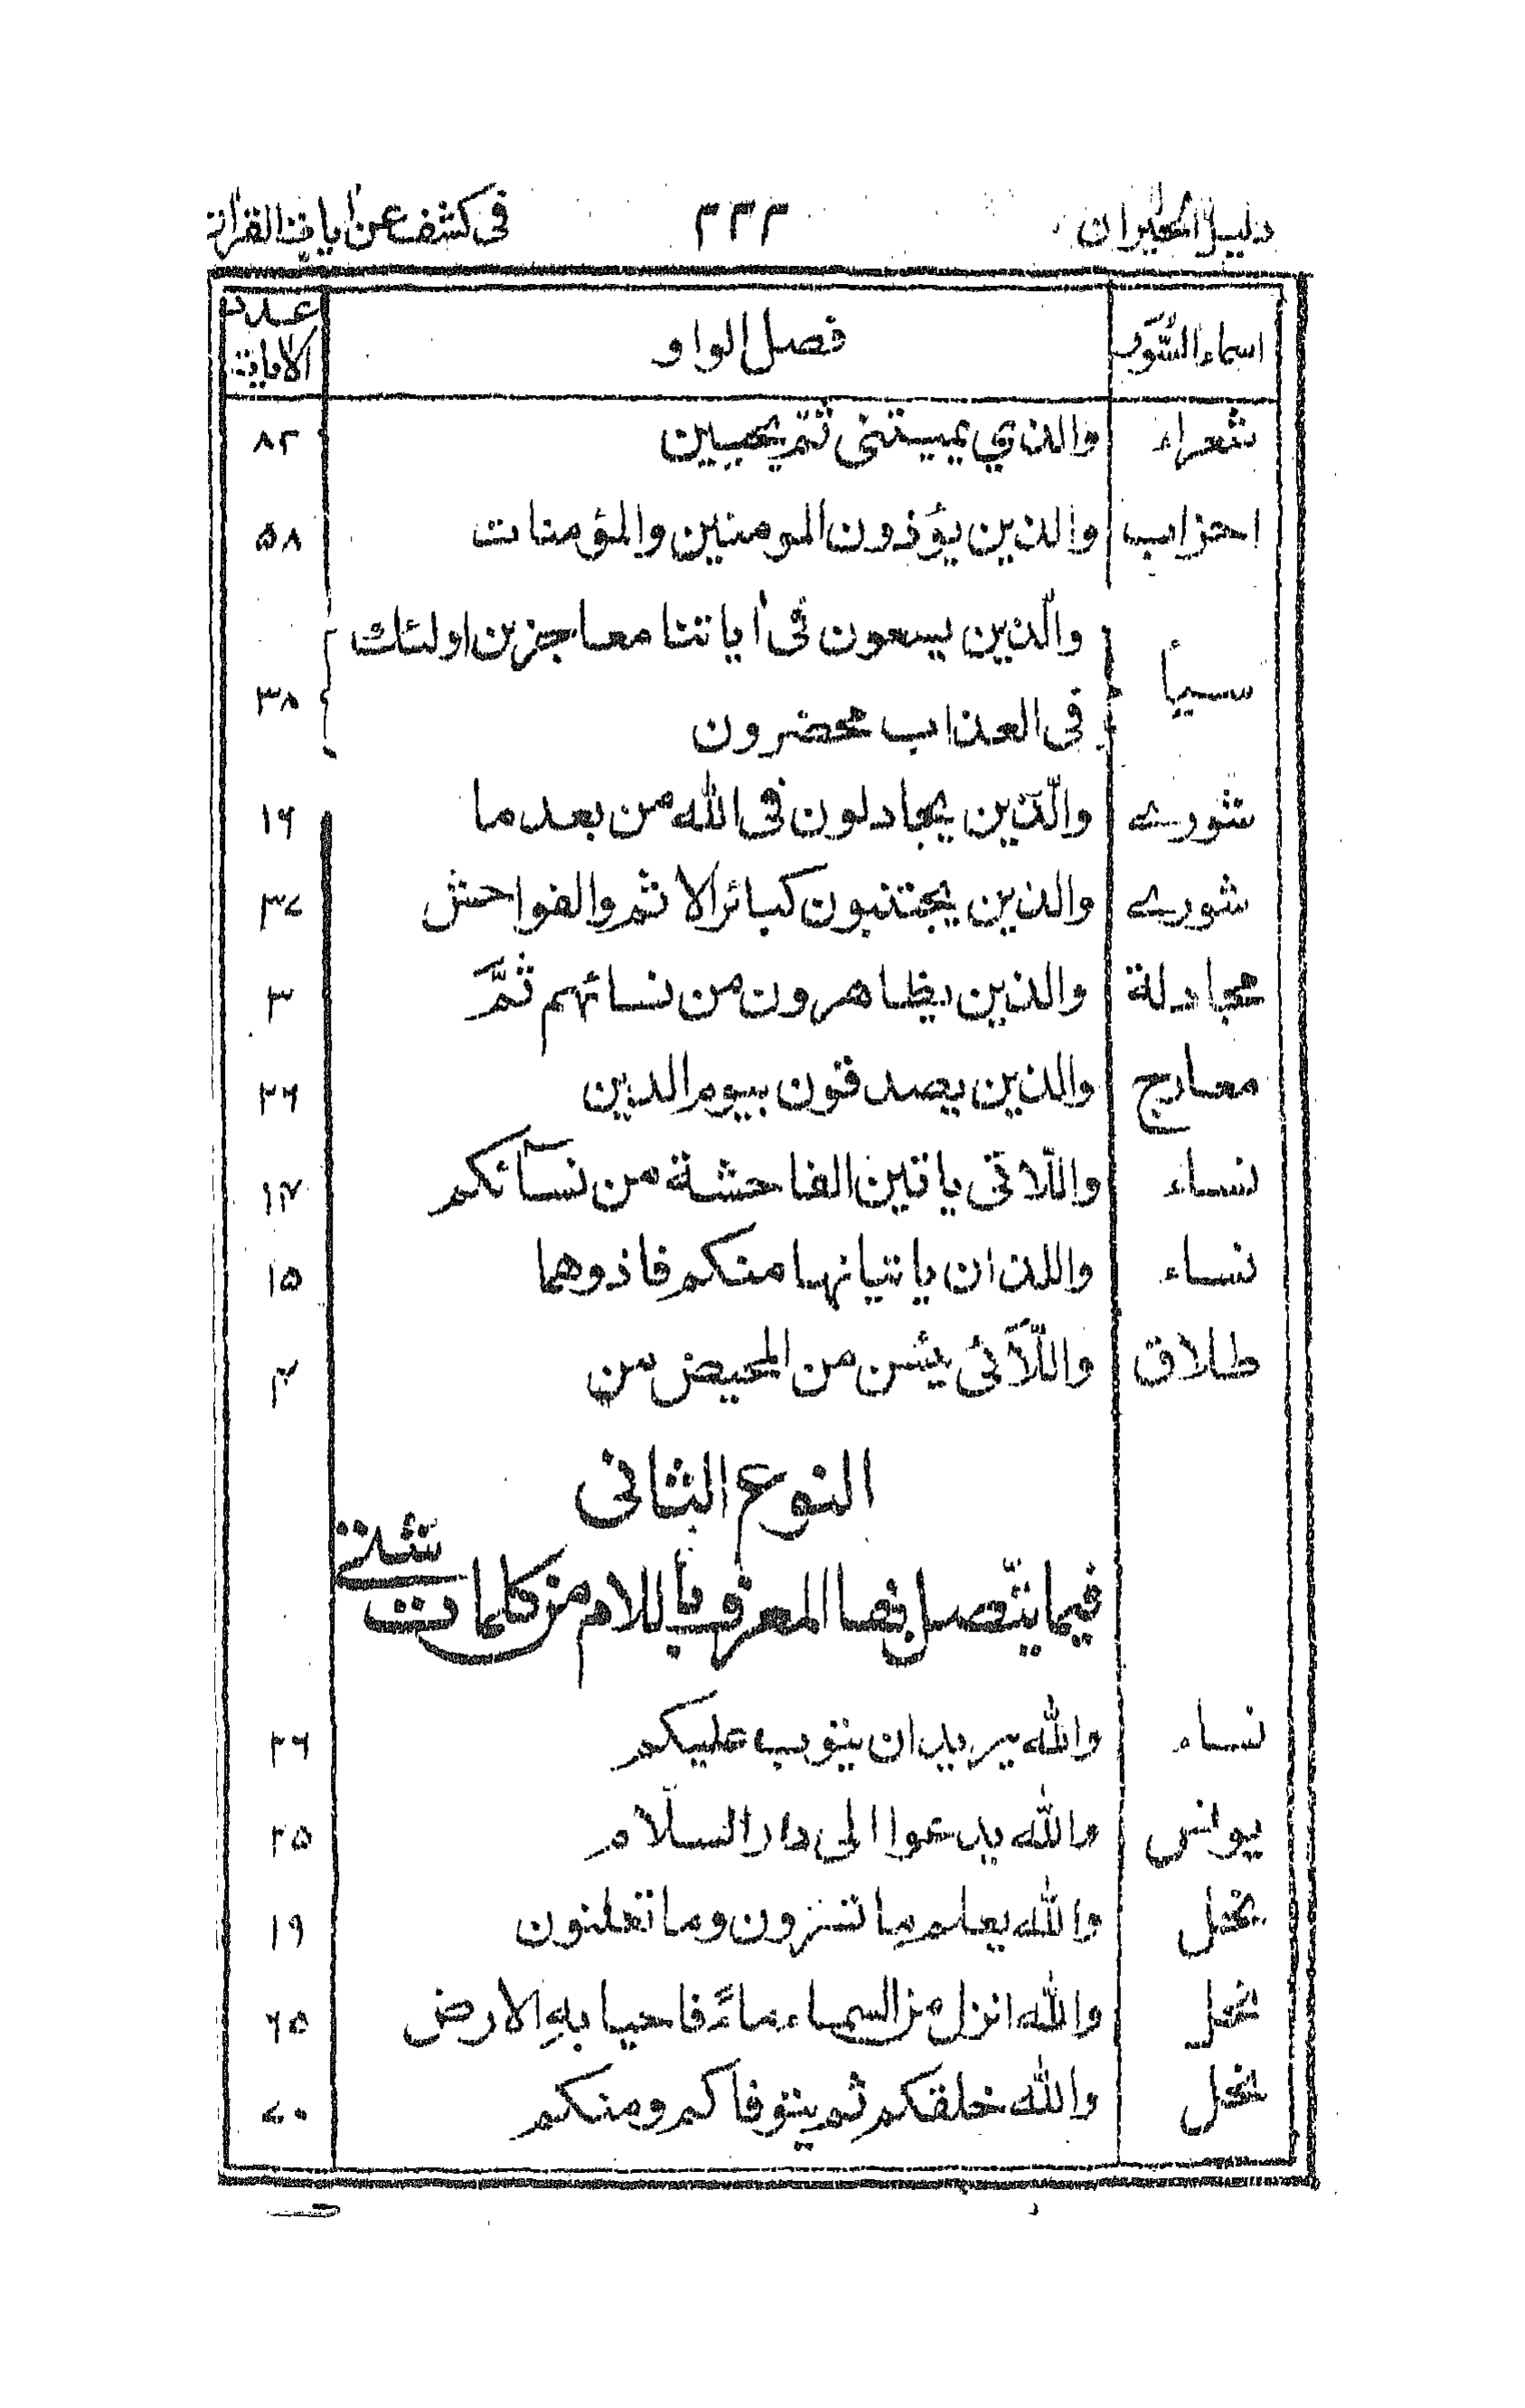 دليل الحيران ٣٣٣ فى كشف عن اٰيات القراٰن
اسماء السُّوَر فصل الواو عدد الاٰيات
شعراء والذي يميتنى ثمّ يحيين ٨٢
احزاب والذين يؤذون المومنين والمؤمنات ٥٨
والّذين يسعون فى اٰياتنا معاجزين اولئك
سبأ فى العذاب محضرون ٣٨
شورے والّذين يجادلون فى الله من بعد ما ١٦
شورے والذين يجتنبون كبائر الاثم والفواحش ٣٧
مجادلة والذين يظاهرون من نسائهم ثمَّ ٣
معارج والذين يصدقون بيوم الدين ٢٦
نساء واللّاتى ياتين الفاحشة من نسآئكم ١٤
نساء واللذان ياتيانها منكم فاذوهما ١٥
طلاق واللّآئى يئسن من المحيض من ٤
النوع الثانى
فيما يتّصل بها المعرف باللام من كلمات شتى
نساء والله يريد ان يتوب عليكم ٢٦
يونس والله يدعوا الى دار السلام ٢٥
نحل والله يعلم ما تسرون وما تعلنون ١٩
نحل والله انزل من السماء ماءً فاحيا بهِ الارض ٦٥
نحل والله خلقكم ثم يتوفاكم ومنكم ٧٠